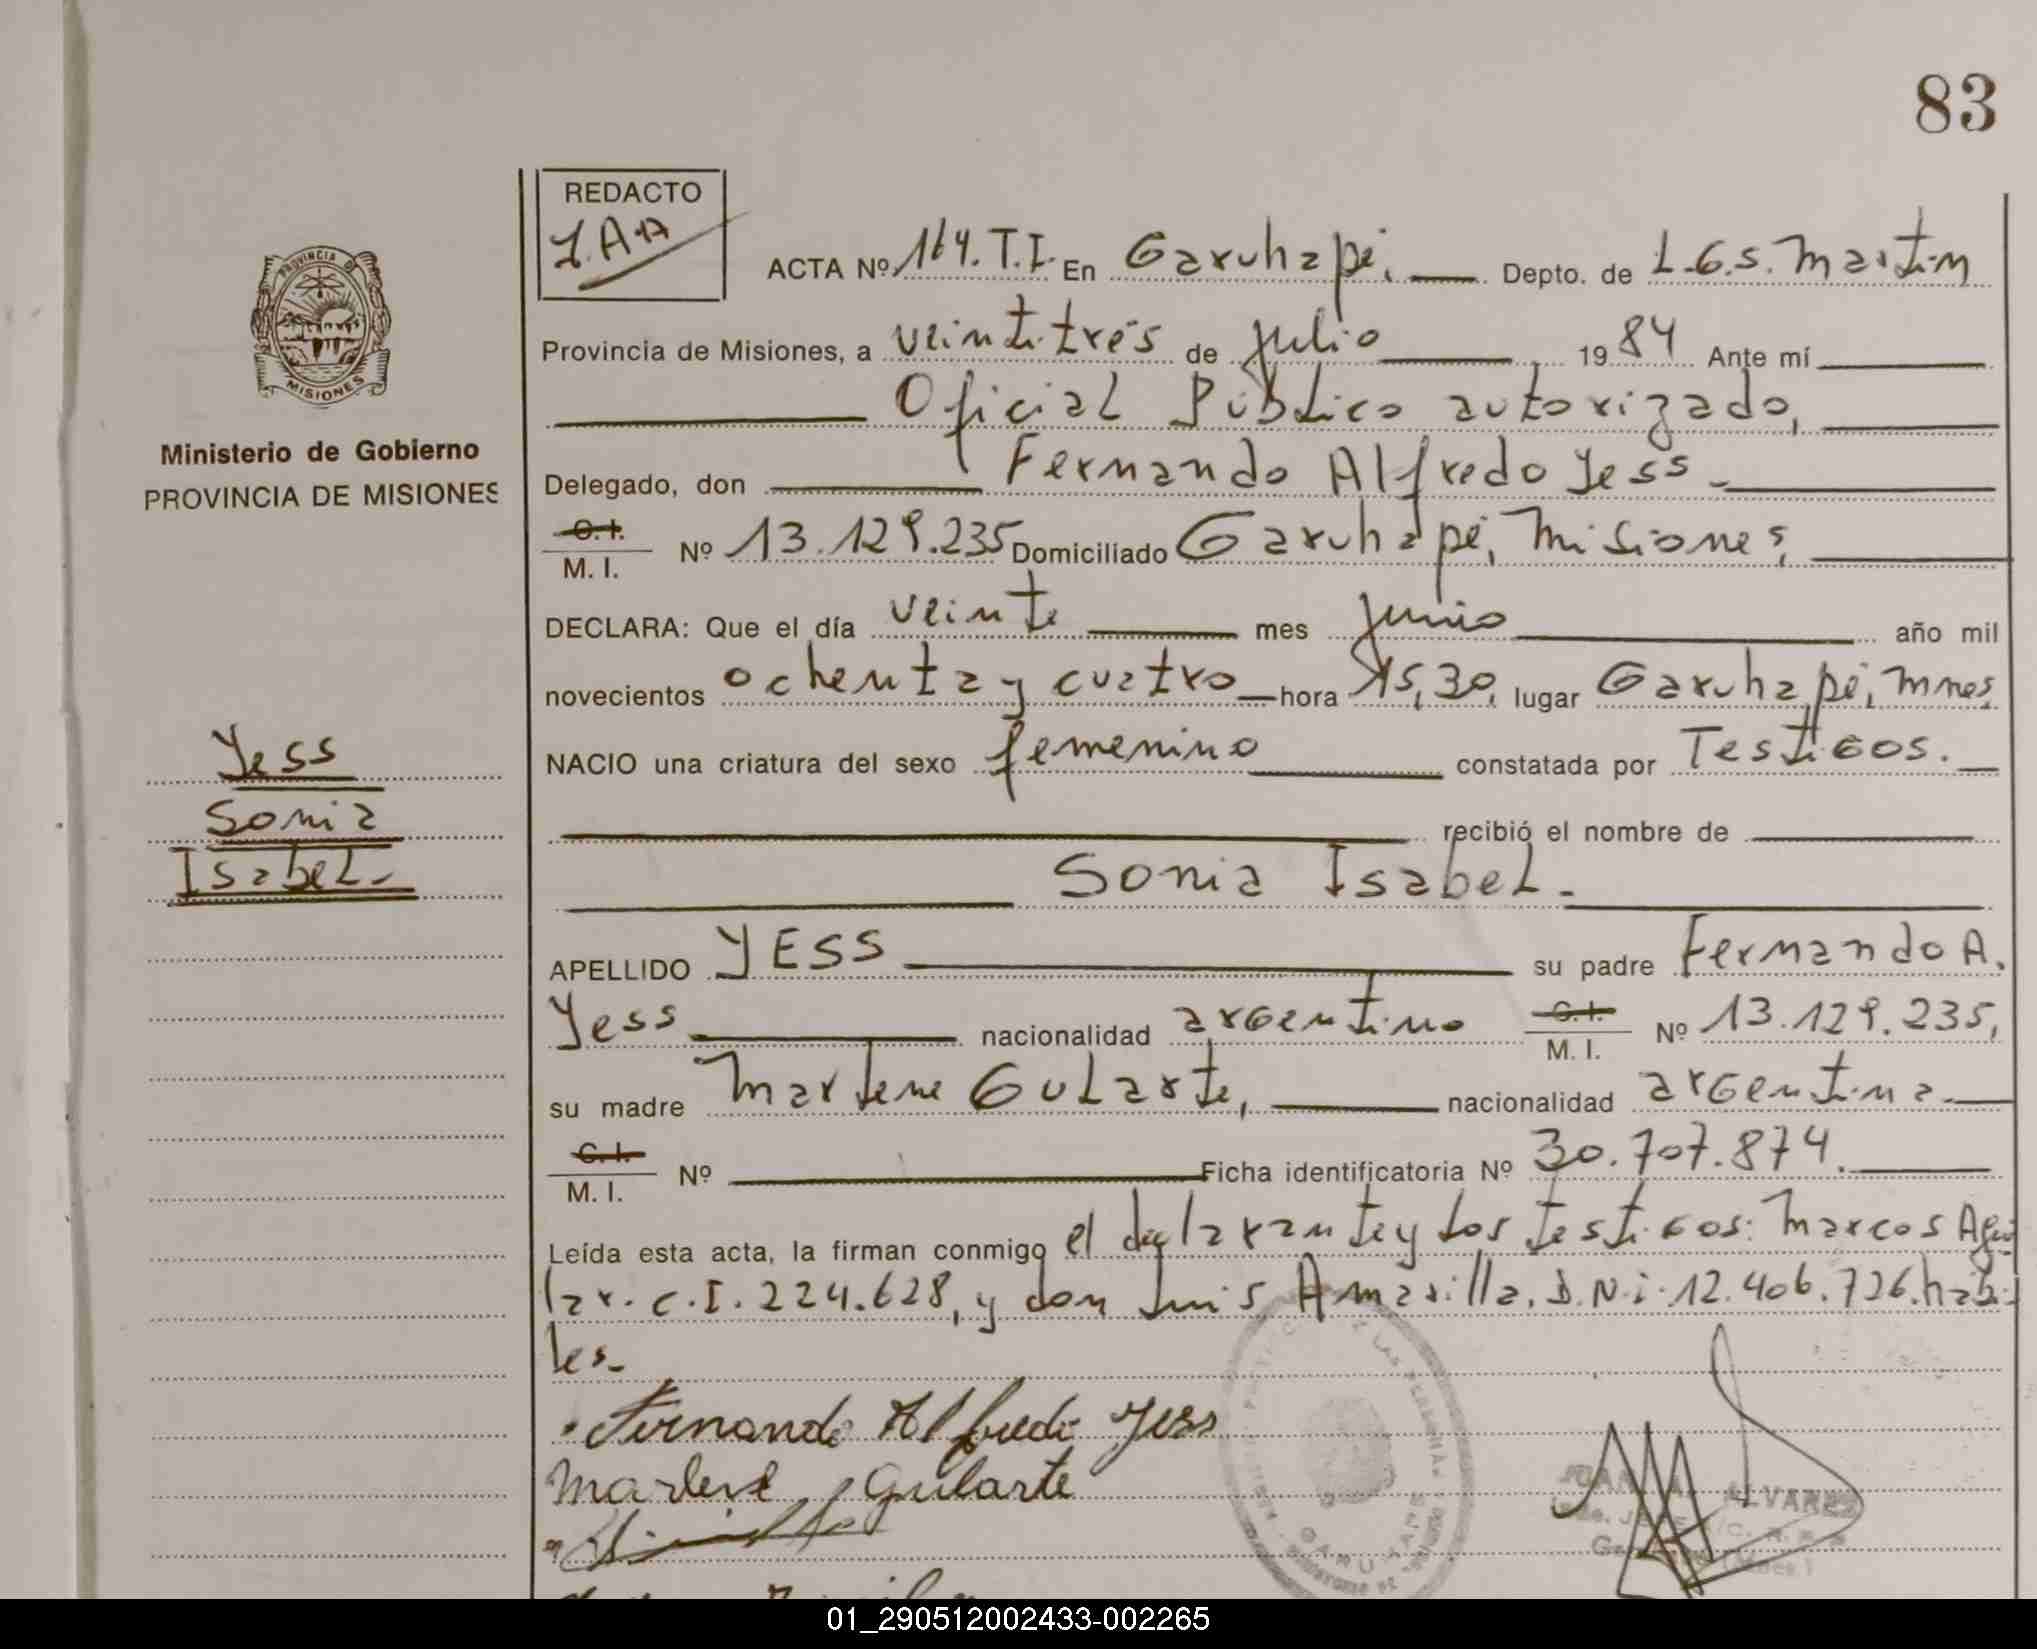 83
REDACTO
J.A.A
ACTA Nº 164.T.I. En Garuhapé, Depto. de L.G.S. Martin
Provincia de Misiones, a veintitrés de julio 1984 Ante mí
Oficial Público autorizado,
Delegado, don Fernando Alfredo Yess.
C.I. M.I. Nº 13.129.235 Domiciliado Garuhapé, Misiones,
DECLARA: Que el día veinte mes junio año mil
novecientos ochenta y cuatro hora 15,30, lugar Garuhapé, Mnes,
NACIO una criatura del sexo femenino constatada por Testigos.
recibió el nombre de
Sonia Isabel.
APELLIDO YESS su padre Fernando A.
Yess nacionalidad argentino C.I. M.I. Nº 13.129.235,
su madre Marlene Gularte, nacionalidad argentina
C.I. M.I. Nº Ficha identificatoria Nº 30.707.874.
Leída esta acta, la firman conmigo el declarante y los testigos: Marcos Agui
lar. C.I. 224.628, y don Luis Amarilla, D.N.i. 12.406.726. habi
les.
Fernando Alfredo Yess
Marlene Gularte
PROVINCIA DE MISIONES
Ministerio de Gobierno
PROVINCIA DE MISIONES
Yess
Sonia
Isabel.
GARUHAPE
JUAN ALVAREZ
01_290512002433-002265